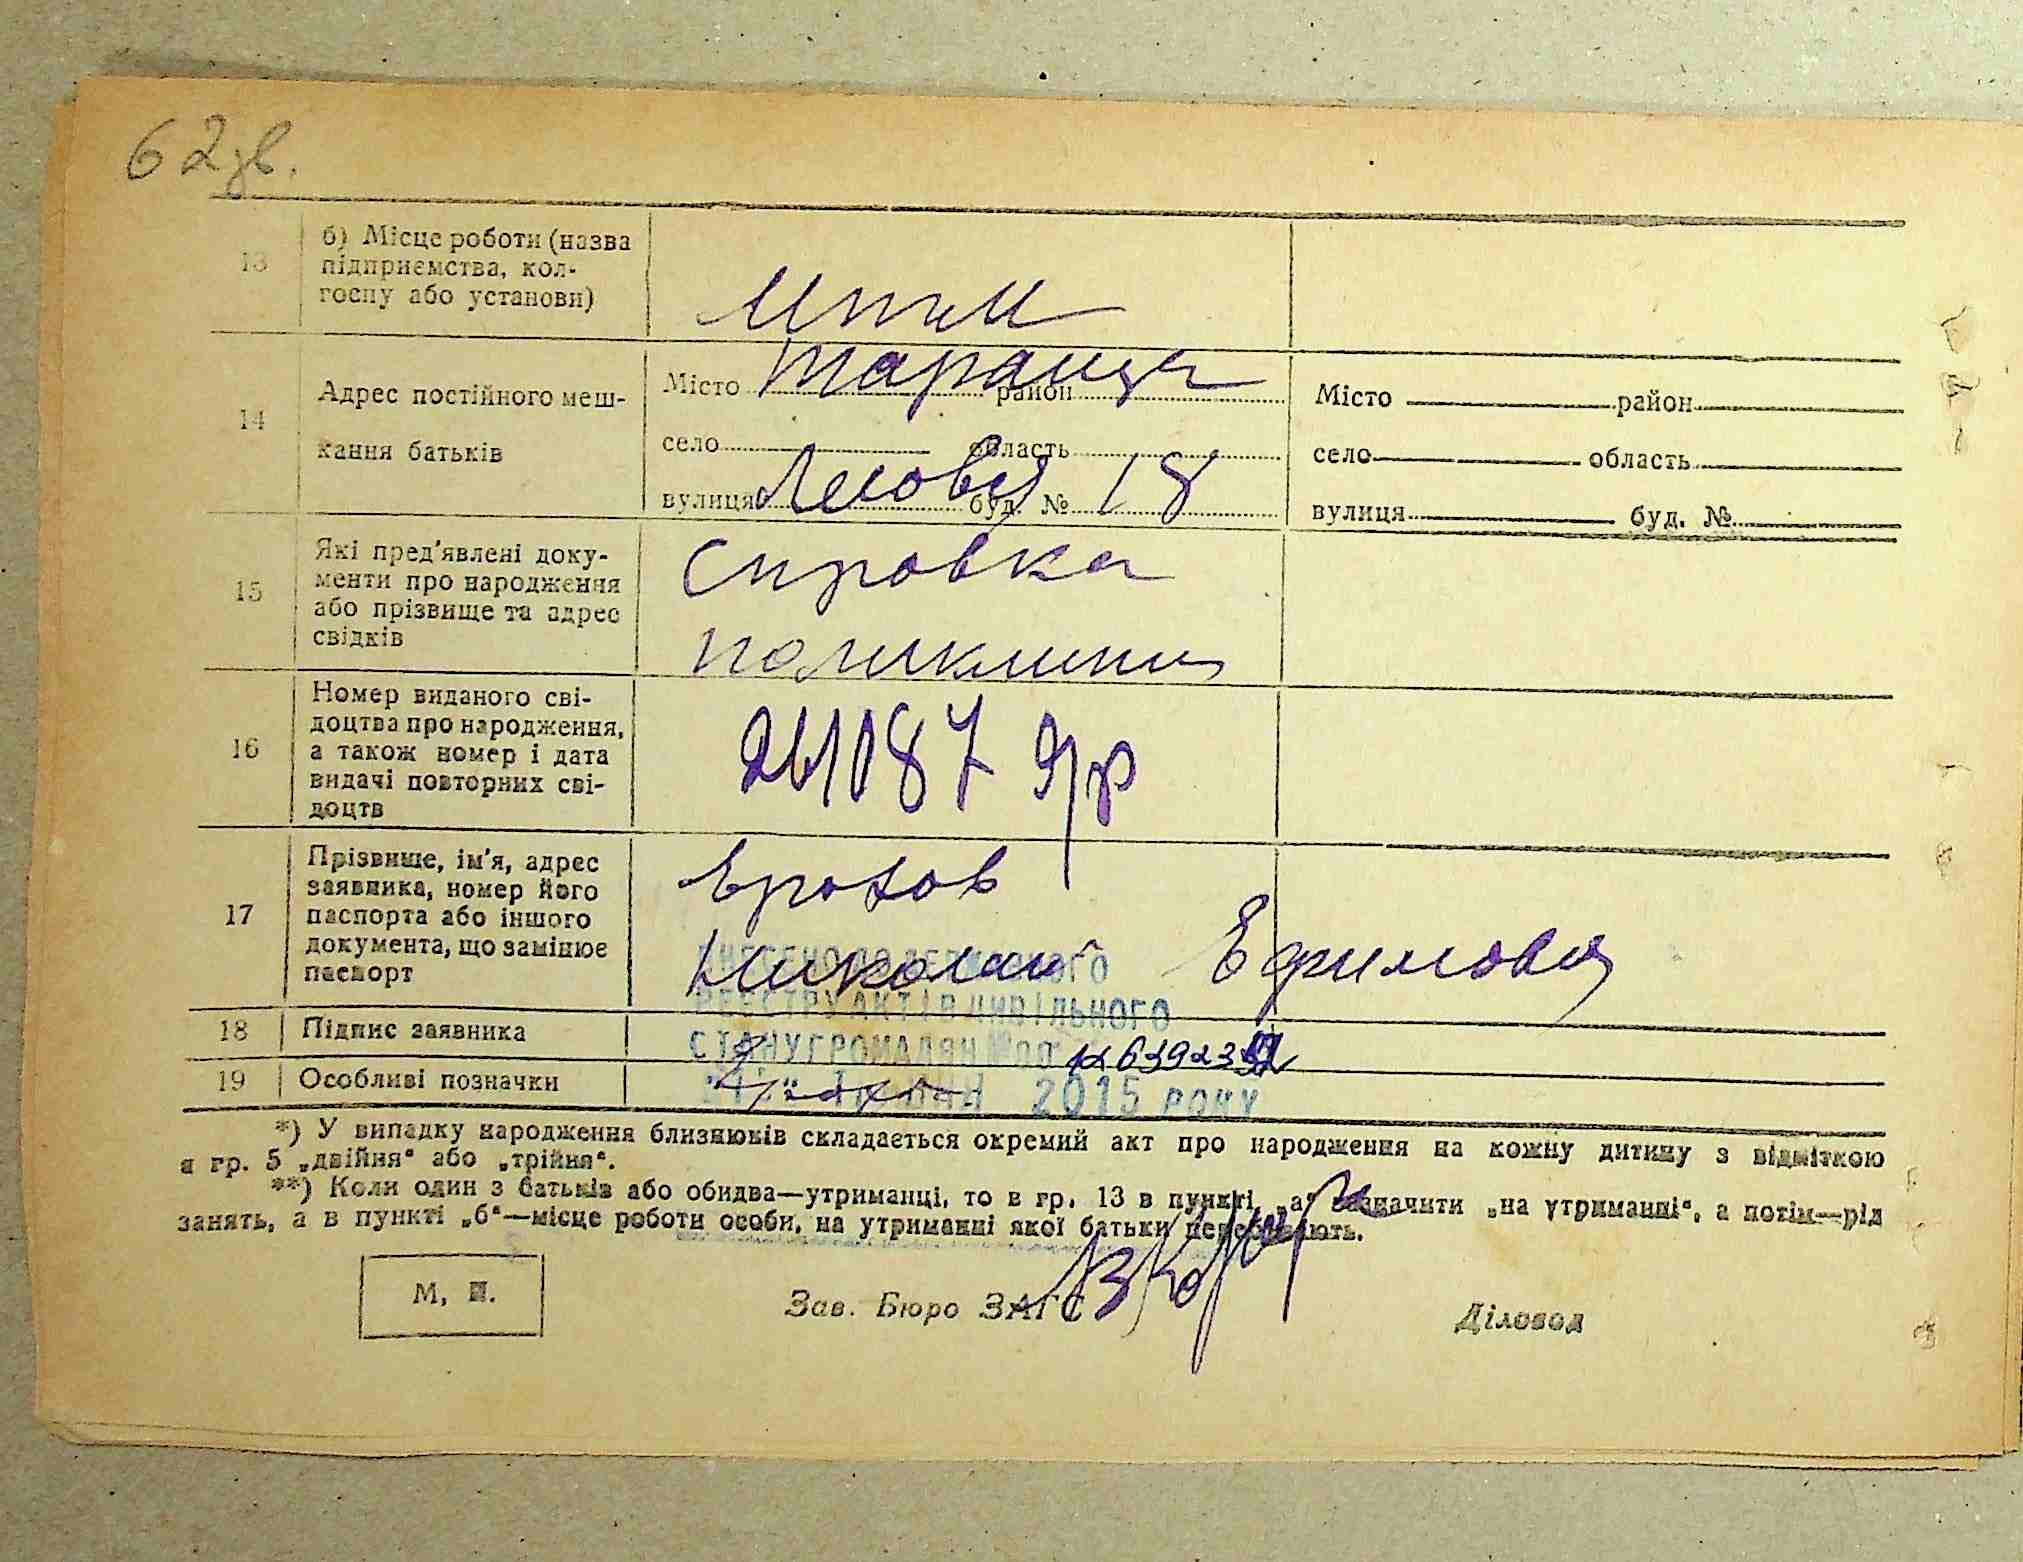 62 зв.
13
б) Місце роботи (назва
підприємства, кол-
госпу або установи)
14
Адрес постійного меш-
кання батьків
Місто Тараща район
село область
вулиця Лесовая буд. № 18
Місто район
село область
вулиця буд. №
15
Які пред'явлені доку-
менти про народження
або прізвище та адрес
свідків
Справка
поликлиники
16
Номер виданого сві-
доцтва про народження,
а також номер і дата
видачі повторних сві-
доцтв
261087
17
Прізвище, ім'я, адрес
заявника, номер його
паспорта або іншого
документа, що замінює
паспорт
Ерохов
Николай Ефимович
ВНЕСЕНО ДО ДЕРЖАВНОГО
РЕЄСТРУ АКТІВ ЦИВІЛЬНОГО
СТАНУ ГРОМАДЯН
2015 РОКУ
18
Підпис заявника
19
Особливі позначки
*) У випадку народження близнюків складається окремий акт про народження на кожну дитину з відміткою
в гр. 5 „двійня“ або „трійня“.
**) Коли один з батьків або обидва—утриманці, то в гр. 13 в пункті „а“ зазначити „на утриманні“, а потім—рід
занять, а в пункті „б“—місце роботи особи, на утриманні якої батьки перебувають.
М. П.
Зав. Бюро ЗАГС
Діловод